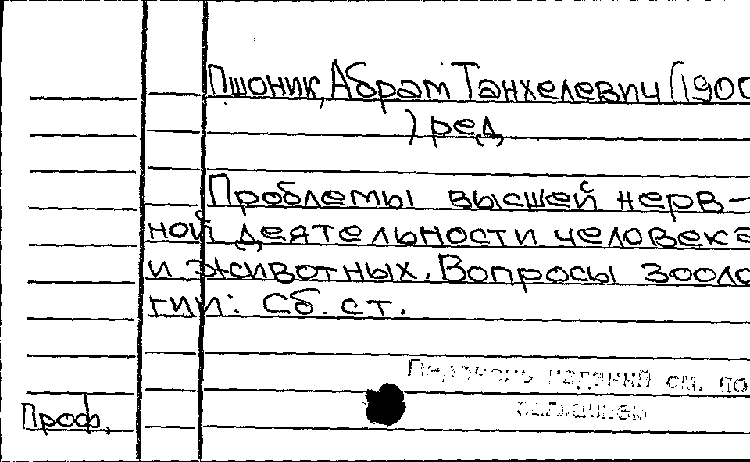 Пшоник, Абрам Танхелевич (1900
) ред.
Проблемы высшей нерв-
ной деятельности человека
и животных. Вопросы зооло
гии: Сб. ст.
Перечень изданий см. по
Проф.